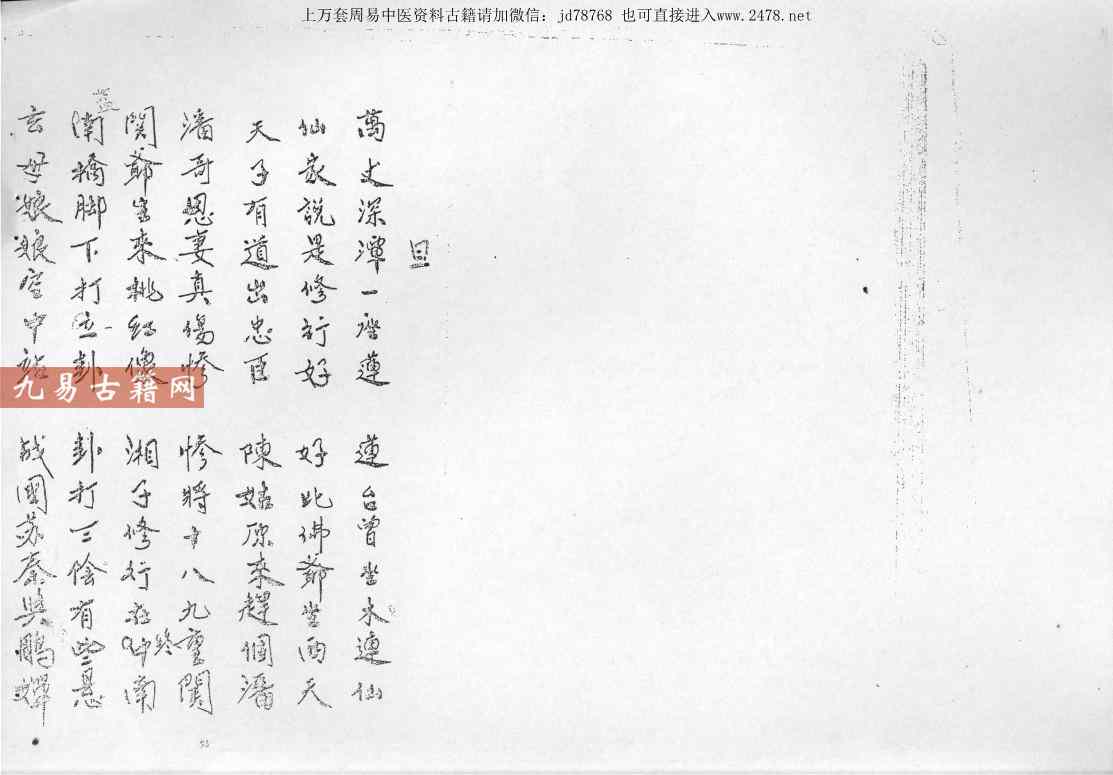 上万套周易中医资料古籍请加微信：jd78768 也可直接进入www.2478.net
旦
萬丈深潭一座蓮 蓮台曾坐水連仙
仙家說是修行好 好比佛爺坐西天
天子有道出忠臣 陳姑原來趕個潘
潘哥恩妻真傷慘 慘將十八九重關
關爺出來挑紅 湘子修行在終南
南橋脚下打一卦 卦打三陰有些忌
玄母娘娘空中 战國苏秦與
九易古籍网